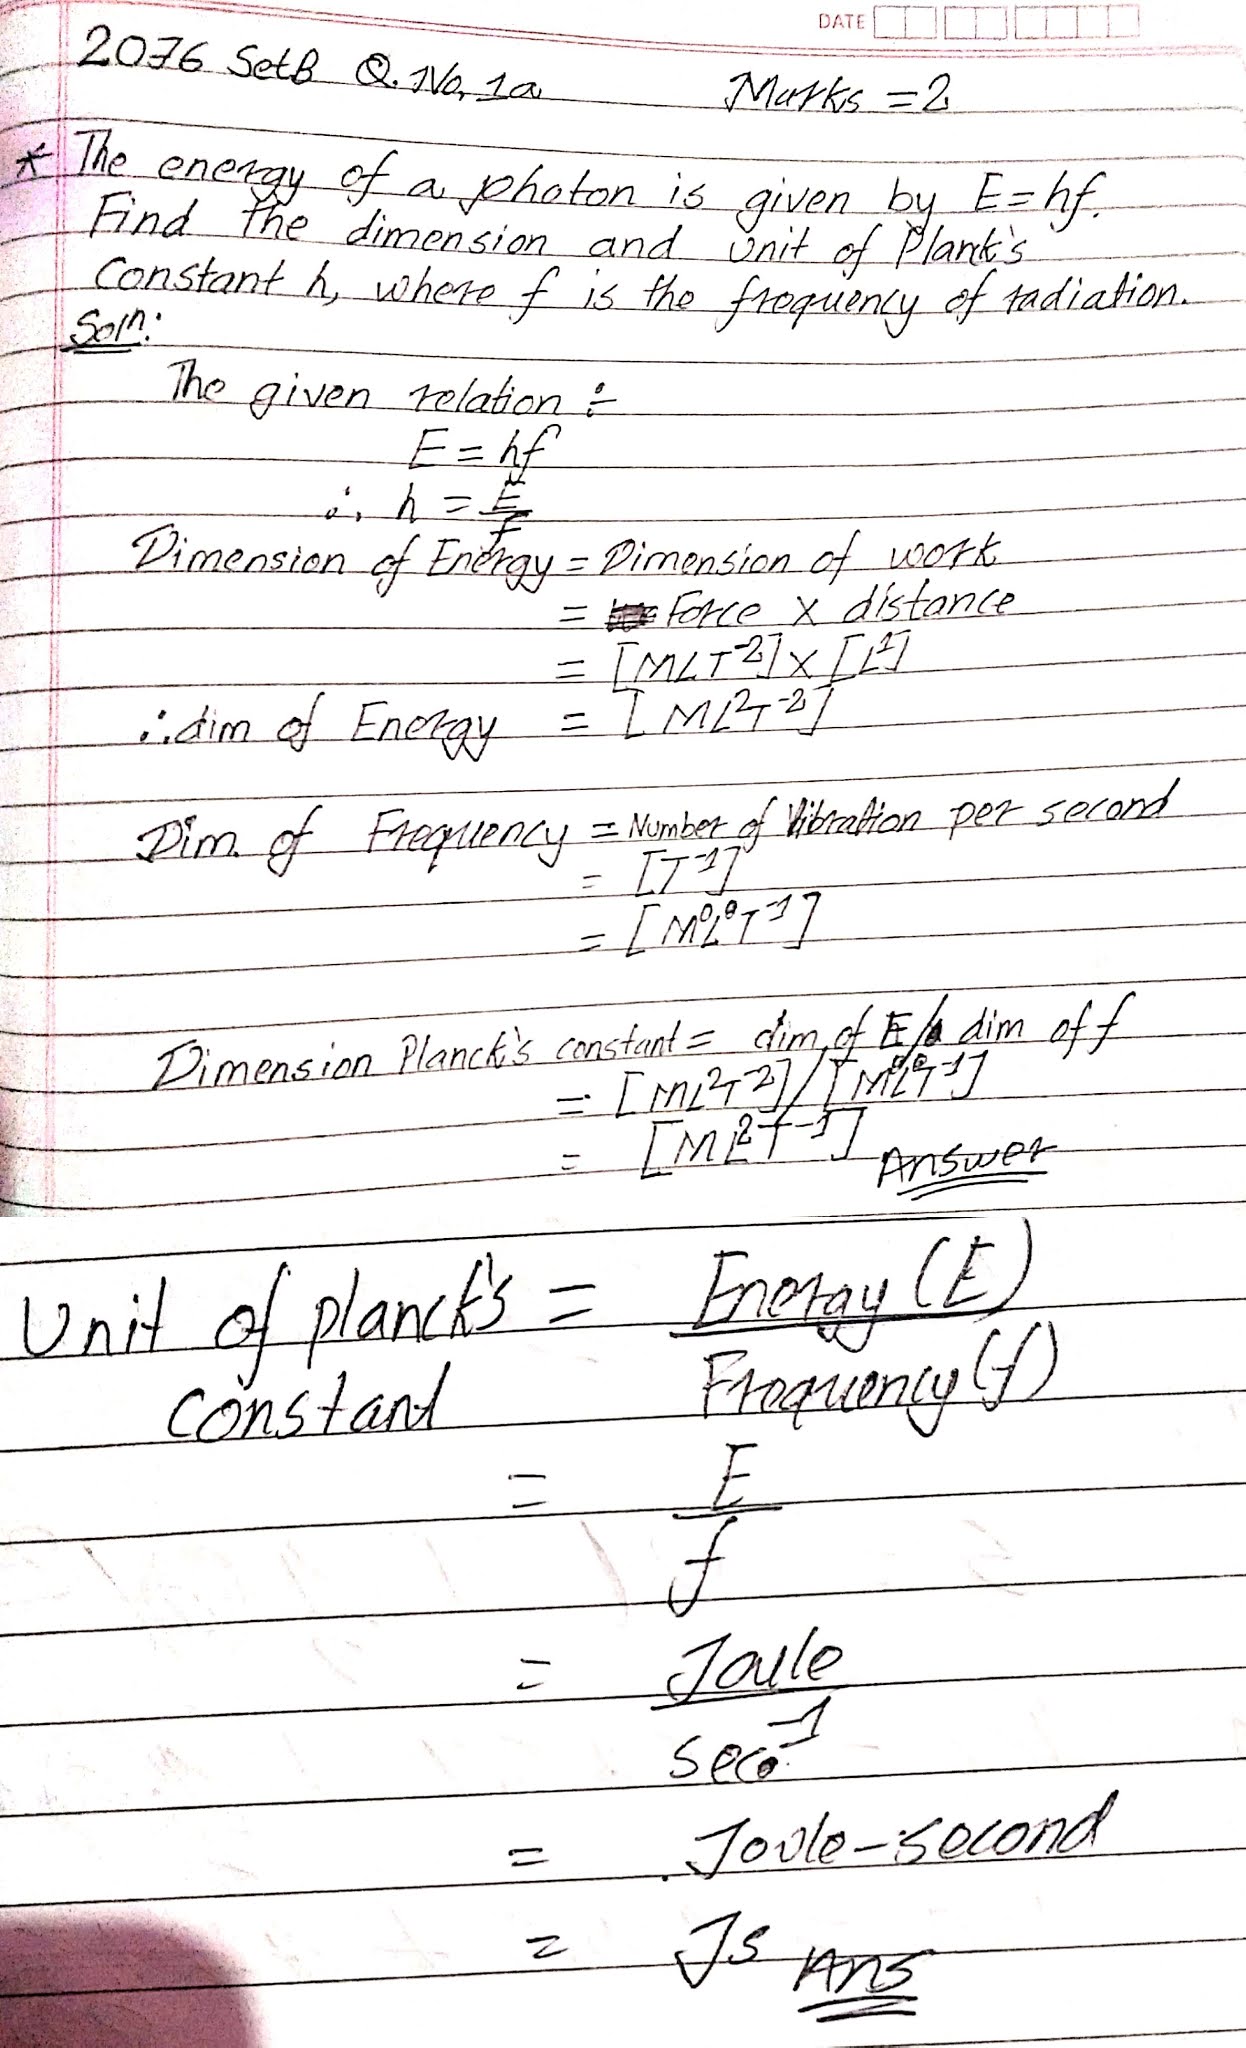 DATE
2076 Set B Q. No. 1a Marks = 2
* The energy of a photon is given by E = hf.
Find the dimension and unit of Plank's
Constant h, where f is the frequency of radiation.
Soln:
The given relation ÷
E = hf
∴ h = E/f
Dimension of Energy = Dimension of work
= Force X distance
= [MLT⁻²] X [L¹]
∴ dim of Energy = [ML²T⁻²]
Dim. of Frequency = Number of Vibration per second
= [T⁻¹]
= [M⁰L⁰T⁻¹]
Dimension Planck's constant = dim. of E / dim of f
= [ML²T⁻²] / [M⁰L⁰T⁻¹]
= [ML²T⁻¹] Answer
Unit of planck's = Energy (E)
constant Frequency (f)
= E
f
= Joule
sec⁻¹
= Joule-second
= Js Ans